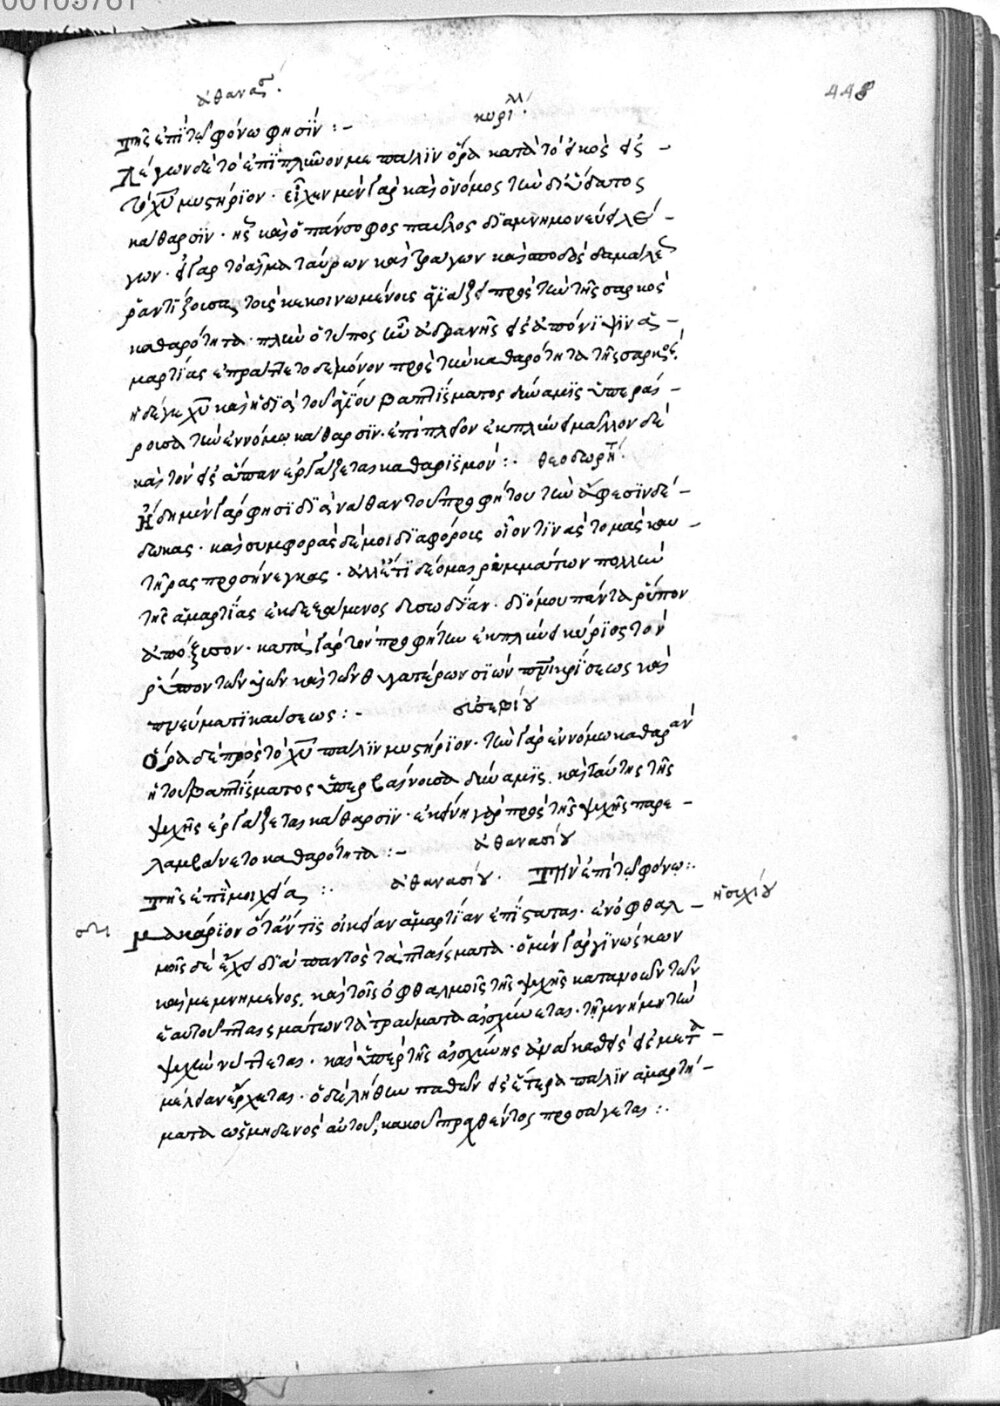 00105781
448
ἀθανασ.
κυριλλ.
τῆς ἐπὶ τῷ φόνῳ φησίν :-
Λέγων δὲ τὸ ἐπὶ πλεῖον με πάλιν ὅρα κατὰ τὸ εἰκὸς εἰς -
τὸ χῦ μυστήριον. εἶχεν μὲν γὰρ καὶ ὁ νόμος τὴν δι' ὕδατος
κάθαρσιν. ἧς καὶ ὁ πάνσοφος παῦλος διαμνημονεύει λέ -
γων. εἰ γὰρ τὸ αἷμα ταύρων καὶ τράγων καὶ σποδὸς δαμάλεως
ῥαντίζουσα τοὺς κεκοινωμένους ἁγιάζει πρὸς τὴν τῆς σαρκὸς
καθαρότητα. πλὴν ὁ τύπος ἦν ἀδρανὴς εἰς ἀπόνιψιν ἁ -
μαρτίας ἐπράττετο δὲ μόνον πρὸς τὴν καθαρότητα τῆς σαρκός.
ἡ δέ γε χῦ καὶ ἡ διὰ τοῦ ἁγίου βαπτίσματος δύναμις ὑπεραί -
ρουσα τὴν ἐννόμῳ κάθαρσιν. ἐπὶ πλεῖον ἐκπλύνει μᾶλλον δὲ
καὶ τὸν εἰς ἅπαν ἐργάζεται καθαρισμόν :. θεοδωρήτ.
Ἤδη μὲν γὰρ φησὶ διὰ νάθαν τοῦ προφήτου τὴν ἄφεσιν δέ -
δωκας. καὶ συμφορὰς δέ μοι διαφόρους οἷόν τινας τομὰς καυ -
τῆρας προσήνεγκας. ἀλλ' ἔτι δέομαι ῥυμμάτων πολλὴν
τῆς ἁμαρτίας ἐκδεξάμενος δυσωδίαν. δι' ὅ μου πάντα ῥύπον
ἀπόξυσον. κατὰ γὰρ τὸν προφήτην ἐκπλύνει κύριος τὸν
ῥύπον τῶν υἱῶν καὶ τῶν θυγατέρων σιὼν πνι κρίσεως καὶ
πνεύματι καύσεως :-
Ὅρα δὲ πρὸς τὸ χῦ πάλιν μυστήριον. τὴν γὰρ ἐννόμῳ καθαρὰν
ἡ τοῦ βαπτίσματος ὑπερβαίνουσα δύναμις. καὶ ταύτης τῆς
ψυχῆς ἐργάζεται κάθαρσιν. ἐκείνη γὰρ πρὸς τῆς ψυχῆς παρε -
λαμβάνετο καθαρότητα :-
ἀθανασίου
τὴν ἐπὶ τῷ φόνῳ:.
τῆς ἐπὶ μοιχείᾳ :.
ἀθανασίου.
ἡσυχίου
Μακάριον ὅταν τις οἰκείαν ἁμαρτίαν ἐπίσταται. ἐν ὀφθαλ -
μοῖς δὲ ἔχει διὰ παντὸς τὰ πταίσματα. ὁ μὲν γὰρ γινώσκων
καὶ μεμνημένος. καὶ τοῖς ὀφθαλμοῖς τῆς ψυχῆς κατανοῶν τῶν
ἑαυτοῦ πταισμάτων τὰ τραύματα αἰσχύνεται. τῇ μνήμῃ τὴν
ψυχὴν νύττεται. καὶ ὑπὲρ τῆς αἰσχύνης ἀναγκασθεὶς εἰς μετα -
μέλειαν ἔρχεται. ὁ δὲ λήθην παθὼν εἰς ἕτερα πάλιν ἁμαρτή -
ματα ὡς μηδενὸς αὐτοῦ, κακοῦ πραχθέντος προσάγεται :.